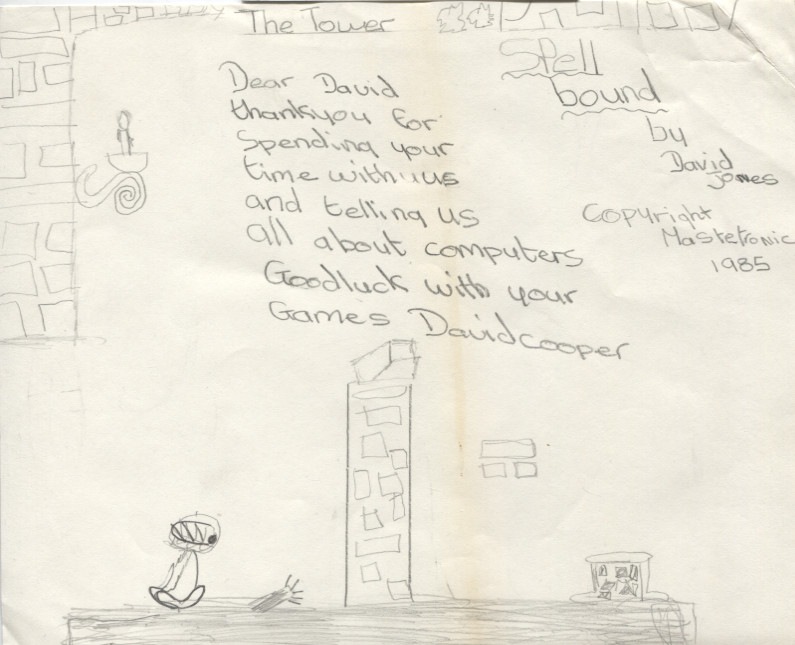 The Tower
Spell
bound
by
David
Jones
Copyright
Mastetronic
1985
Dear David
thankyou for
Spending your
time with us
and telling us
all about computers
Goodluck with your
Games Davidcooper